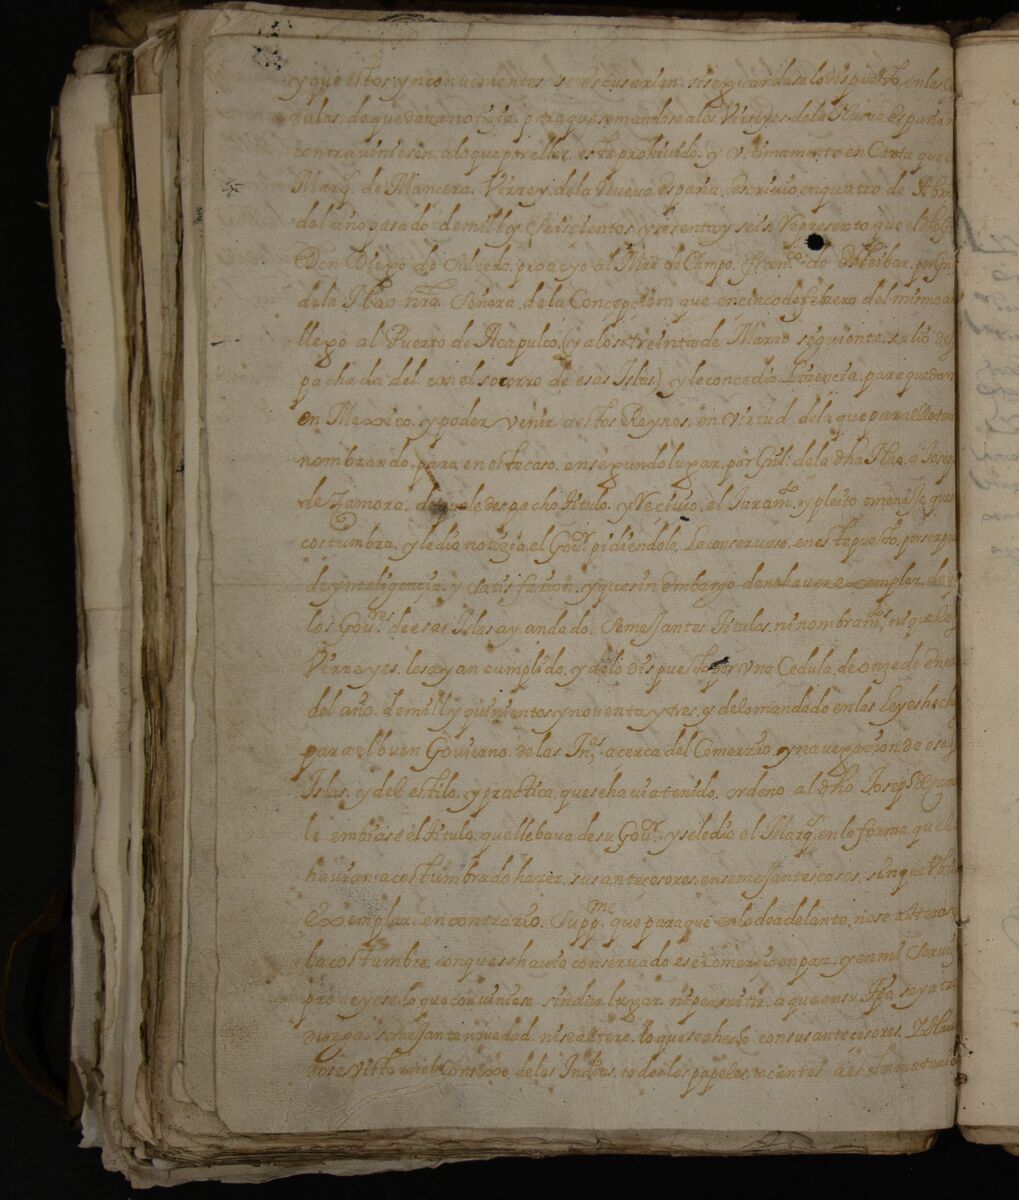 y que estos ynconuenientes se escusarian si se guardase lo dispuesto en las
dulas, de que dava noticia, para que se mandase a los Virreyes de la Nueva españa n
contraviniesen, a lo que por ellas esta prohiuido. y Vltimamente en Carta que
Marq.s de Mancera, Virrey de la Nueva españa, escriuio en quatro de Abr
del año pasado de mill y Seiscientos y sesenta y seis, Represento que el dho G
Don Diego de Salcedo, proueyo al Mre de Campo, Fran.co de esteibar, por Gnl
de la Nao nra Señora de la Concepçion que en cinco de febrero del mismo a
llegó al Puerto de Acapulco, (y a los treinta de Março siguiente salio des
pachada del con el socorro de esas Islas) y le concedia Lizencia, para quedar
en Mexico, y poder venir a estos Reynos, en virtud de la que para ello
nombrando para en este caso, en segundo lugar, por Gnl de la dha Nao, a Josep
de Zamora, de que le despacho titulo, y Reciuio el Juram.to y pleito omenaje que
costumbra, y le dio notizia el Gou.r pidiendole, le conservase en este puesto, por ser per
de ynteligencia, y Satisfacion, y que sin embargo de no haver exemplar, de q
los Gou.res de esas Islas ayan dado Semejantes titulos, ni nombram.tos, ni que los
Virreyes, los ayan cumplido, y de lo dispuesto por vna Cedula, de onze de ener
del año de mill y quinientos y noventa y tres, y de lo mandado en las Leyes hech
para el buen Gouierno de las Ind.s acerca del Comerzio, y navegazion de esas
Islas, y del estilo, y practica, que se havia tenido, ordeno al dho Joseph de Zam
le embiase el titulo, que llebava de su Gou.r y se le dio el Marq.s en la forma, que
havian acostumbrado hazer, sus antecesores, en semejantes casos, sin que Vbi
Exemplar, en contrario. Supp.me que para que en lo de adelante, no se alteras
la costumbre, con que se hauia conservado ese Comercio en paz, y en mi Serui
proueyese, lo que conviniese, sin dar lugar, ni permitir, a que en su tpo, se yntro
duzga, semejante novedad, ni se altere, lo que se a hecho con sus antecesores. Y Hau
dose visto en el Consejo de las Indias, todos los papeles, tocantes a esta materia